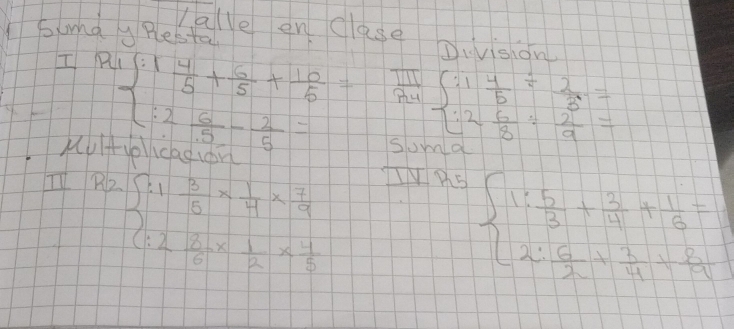 Talle en Clase
Suma y Resta
I R1 :1 4/5 + 6/5 + 10/5 =
:2 6/5 - 2/5 =
Multiplicación
II R2 :1 3/5 × 1/4 × 7/9
:2 8/6 × 1/2 × 4/5
División
III R4 :1 4/5 ÷ 2/3 =
:2 6/8 ÷ 2/9 =
Suma
IV R5 1: 5/3 + 3/4 + 1/6 =
2: 6/2 + 3/4 + 8/9